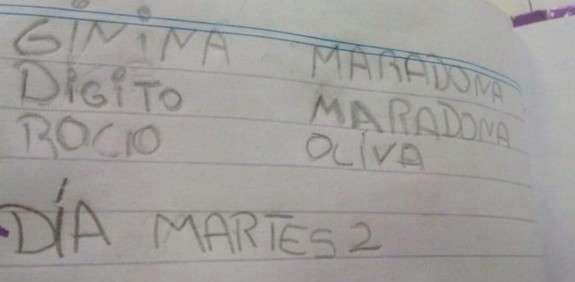 GINiNA MARADONA
DiGiTO MARADONA
ROCIO OLiVA
DÍA MARTES 2